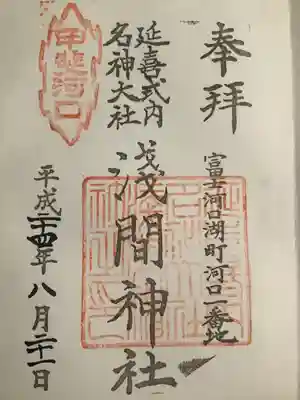 奉拝
富士河口湖町河口一番地
延喜式内
名神大社
浅間神社
平成二十四年八月二十一日
甲斐河口